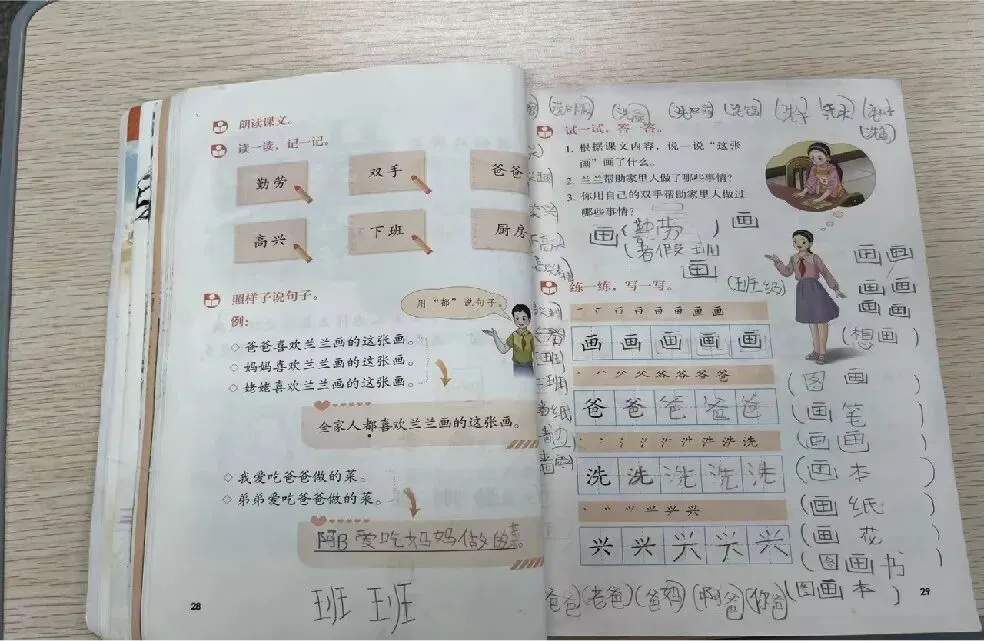 朗读课文。
读一读，记一记。
勤劳
双手
爸爸
高兴
下班
厨房
照样子说句子。
例：
用“都”说句子。
爸爸喜欢兰兰画的这张画。
妈妈喜欢兰兰画的这张画。
姥姥喜欢兰兰画的这张画。
全家人都喜欢兰兰画的这张画。
我爱吃爸爸做的菜。
弟弟爱吃爸爸做的菜。
爱吃妈妈做的菜。
班 班
28
试一试，答一答。
1. 根据课文内容，说一说“这张
画”画了什么。
2. 兰兰帮助家里人做了哪些事情？
3. 你用自己的双手帮助家里人做过
哪些事情？
画 (勤劳) 画
(暑假班
画
练一练，写一写。
(班级)
画 画
画 画
画 画
(想画)
画 画 画 画 画
爸 爸 爸 爸 爸
洗 洗 洗 洗 洗
兴 兴 兴 兴 兴
(图画)
(画笔)
(画画)
(画本)
(画纸)
(画花)
(图画书)
(图画本)
爸爸 (老爸) (爸妈) (啊爸) (你爸)
29